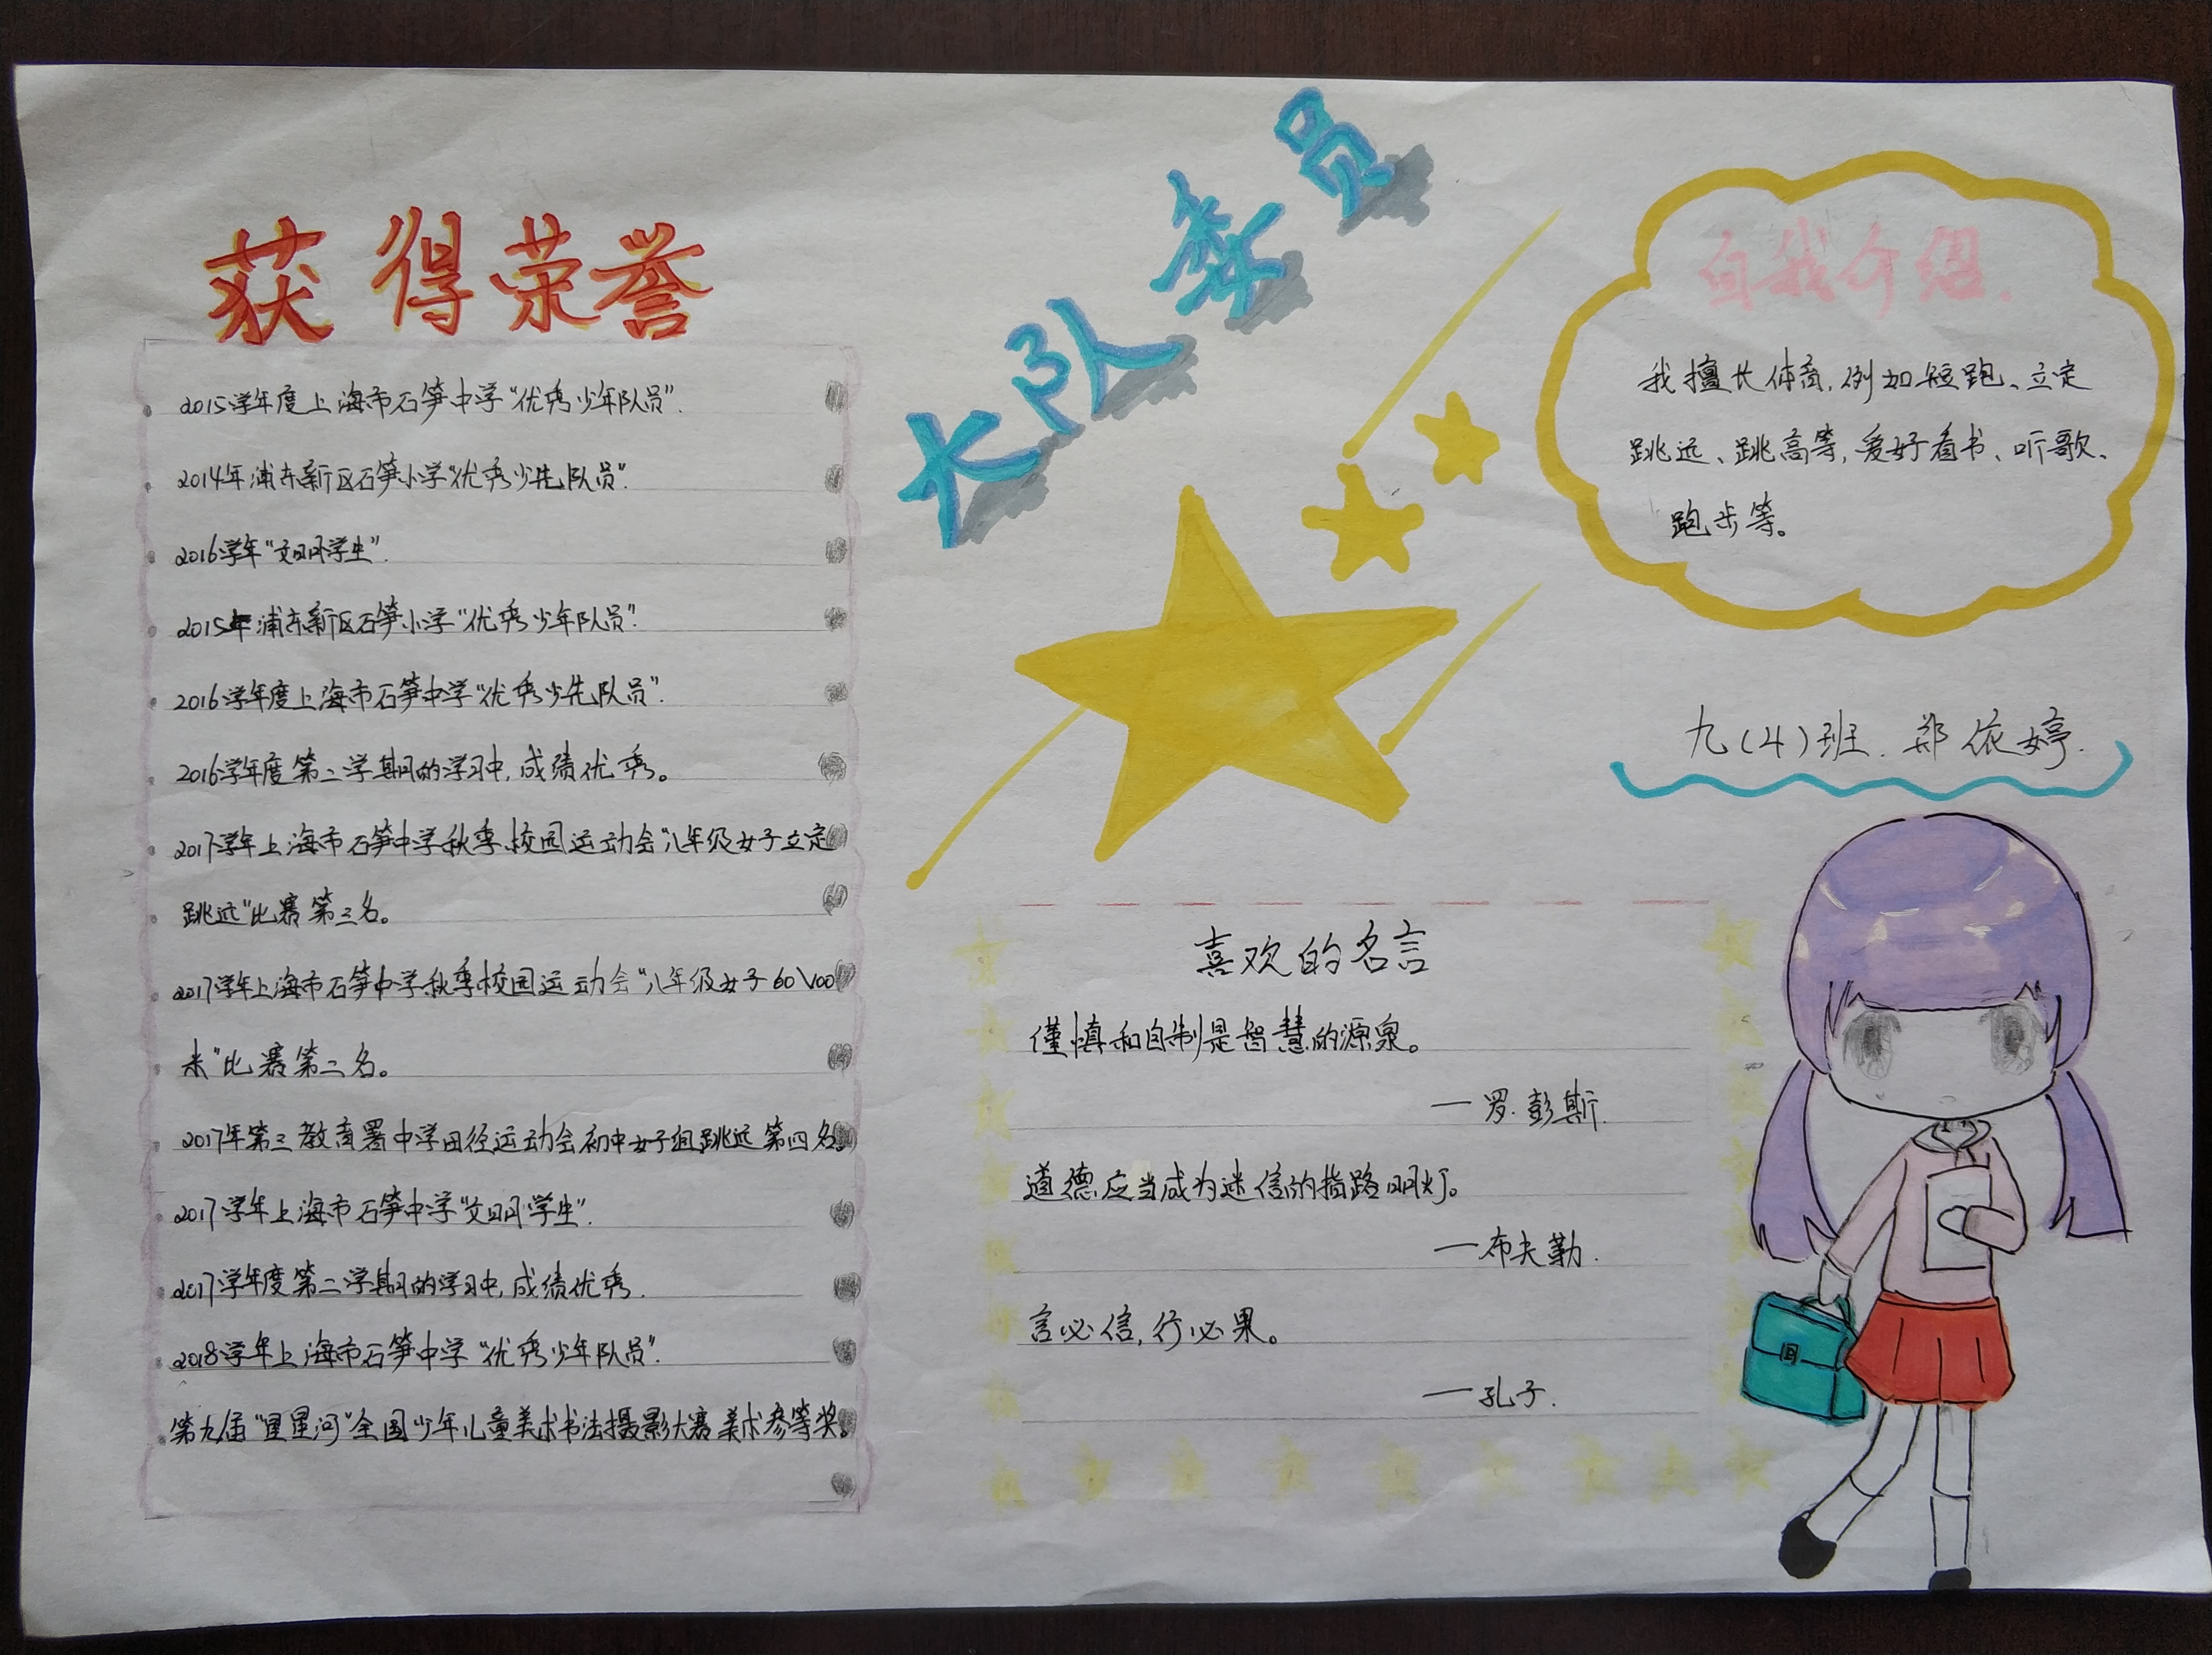 获得荣誉
2015学年度上海市石笋中学“优秀少年队员”.
2014年浦东新区石笋小学“优秀少先队员”.
2016学年“文明学生”.
2015年浦东新区石笋小学“优秀少年队员”.
2016学年度上海市石笋中学“优秀少先队员”.
2016学年度第二学期的学习中,成绩优秀。
2017学年上海市石笋中学秋季校园运动会“八年级女子立定
跳远”比赛第三名。
2017学年上海市石笋中学秋季校园运动会“八年级女子60\100
米”比赛第二名。
2017年第三教育署中学田径运动会初中女子组跳远第四名。
2017学年上海市石笋中学“文明学生”.
2017学年度第二学期的学习中,成绩优秀.
2018学年上海市石笋中学“优秀少年队员”.
第九届“星星河”全国少年儿童美术书法摄影大赛美术参等奖。
大队委员
自我介绍.
我擅长体育,例如短跑、立定
跳远、跳高等,爱好看书、听歌、
跑步等。
九(4)班.郑依婷.
喜欢的名言
谨慎和自制是智慧的源泉。
—罗.彭斯.
道德应当成为迷信的指路明灯。
—布夫勒.
言必信,行必果。
—孔子.